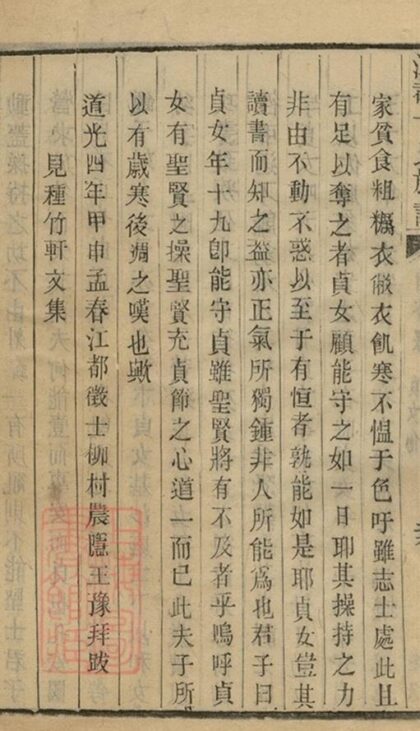 家貧食粗糲衣敝衣飢寒不慍于色吁雖志士處此且
有足以奪之者貞女顧能守之如一日耶其操持之力
非由不動不惑以至于有恒者孰能如是耶貞女豈其
讀書而知之葢亦正氣所獨鍾非人所能爲也君子曰
貞女年十九卽能守貞雖聖賢將有不及者乎嗚呼貞
女有聖賢之操聖賢充貞節之心道一而已此夫子所
以有歲寒後凋之嘆也歟
道光四年甲申孟春江都徵士柳村農隱王豫拜跋
見種竹軒文集